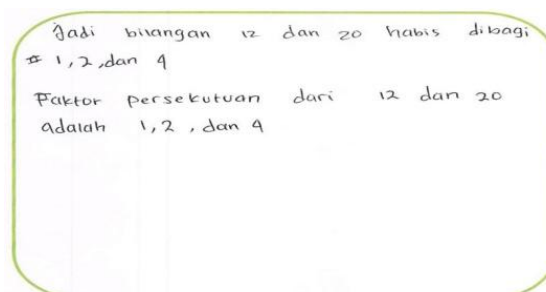 Jadi bilangan 12 dan 20 habis dibagi
1, 2, dan 4
Faktor persekutuan dari 12 dan 20
adalah 1, 2, dan 4